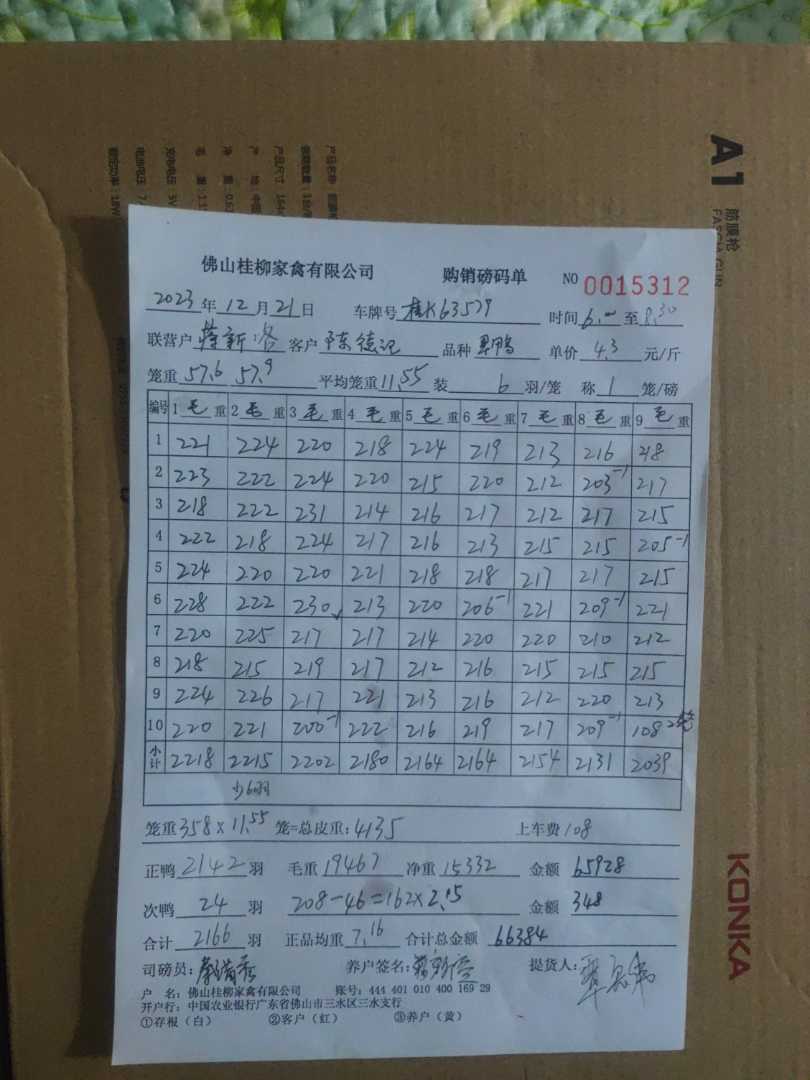 A1
筋膜枪
KONKA
佛山桂柳家禽有限公司 购销磅码单 NO 0015312
2023年12月21日 车牌号桂K63579 时间6:00至8:30
联营户 客户陈德记 品种 单价4.3元/斤
笼重57.6 57.9 平均笼重11.55装6羽/笼 称1笼/磅
编号 1毛重 2毛重 3毛重 4毛重 5毛重 6毛重 7毛重 8毛重 9毛重
1 221 224 220 218 224 219 213 216 218
2 223 222 224 220 215 220 212 203-1 217
3 218 222 231 214 216 217 212 217 215
4 222 218 224 217 216 213 215 215 205-1
5 224 220 220 221 218 218 217 217 215
6 228 222 230 213 220 206-1 221 209-1 221
7 220 225 217 217 214 220 220 210 212
8 218 215 219 217 212 216 215 215 215
9 224 226 217 221 213 216 212 220 213
10 220 221 200-1 222 216 219 217 209-1 108 2笼
小计 2218 2215 2202 2180 2164 2164 2154 2131 2039
少6羽
笼重358×11.55笼=总皮重:4135 上车费108
正鸭2142羽 毛重19467 净重15332 金额65928
次鸭24羽 208-46=162×2.15 金额348
合计2166羽 正品均重7.16 合计总金额66384
司磅员: 养户签名: 提货人:
户 名:佛山桂柳家禽有限公司 账号:444 401 010 400 169 29
开户行:中国农业银行广东省佛山市三水区三水支行
①存根(白) ②客户(红) ③养户(黄)